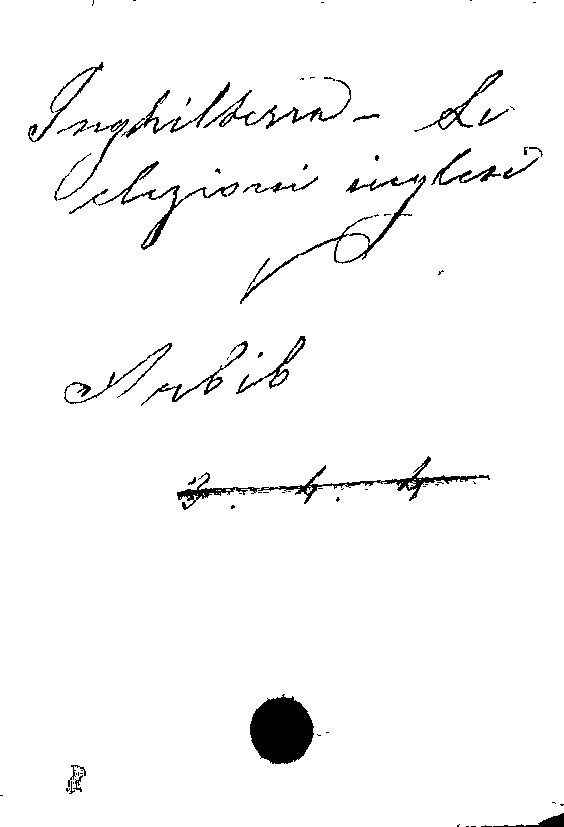 Inghilterra - Le
elezioni inglesi
Arbib
3. 4. 4